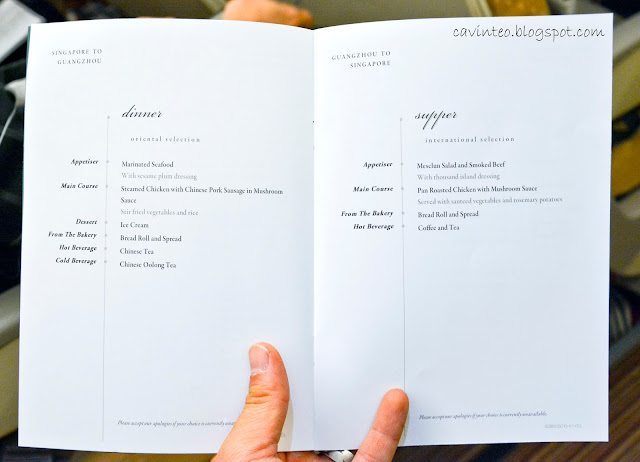 cavinteo.blogspot.com
SINGAPORE TO
GUANGZHOU
dinner
oriental selection
Appetiser Marinated Seafood
With sesame plum dressing
Main Course Steamed Chicken with Chinese Pork Sausage in Mushroom
Sauce
Stir fried vegetables and rice
Dessert Ice Cream
From The Bakery Bread Roll and Spread
Hot Beverage Chinese Tea
Cold Beverage Chinese Oolong Tea
Please accept our apologies if your choice is currently unavailable.
GUANGZHOU TO
SINGAPORE
supper
international selection
Appetiser Mesclun Salad and Smoked Beef
With thousand island dressing
Main Course Pan Roasted Chicken with Mushroom Sauce
Served with sauteed vegetables and rosemary potatoes
From The Bakery Bread Roll and Spread
Hot Beverage Coffee and Tea
Please accept our apologies if your choice is currently unavailable.